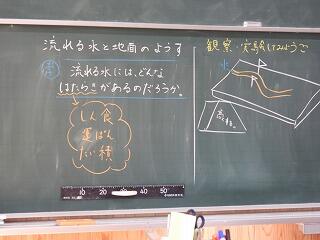 流れる水と地面のようす
流れる水には、どんな
はたらきがあるのだろうか。
しん食
運ぱん
たい積
10 20 30 40 50
観察・実験してみようで
水